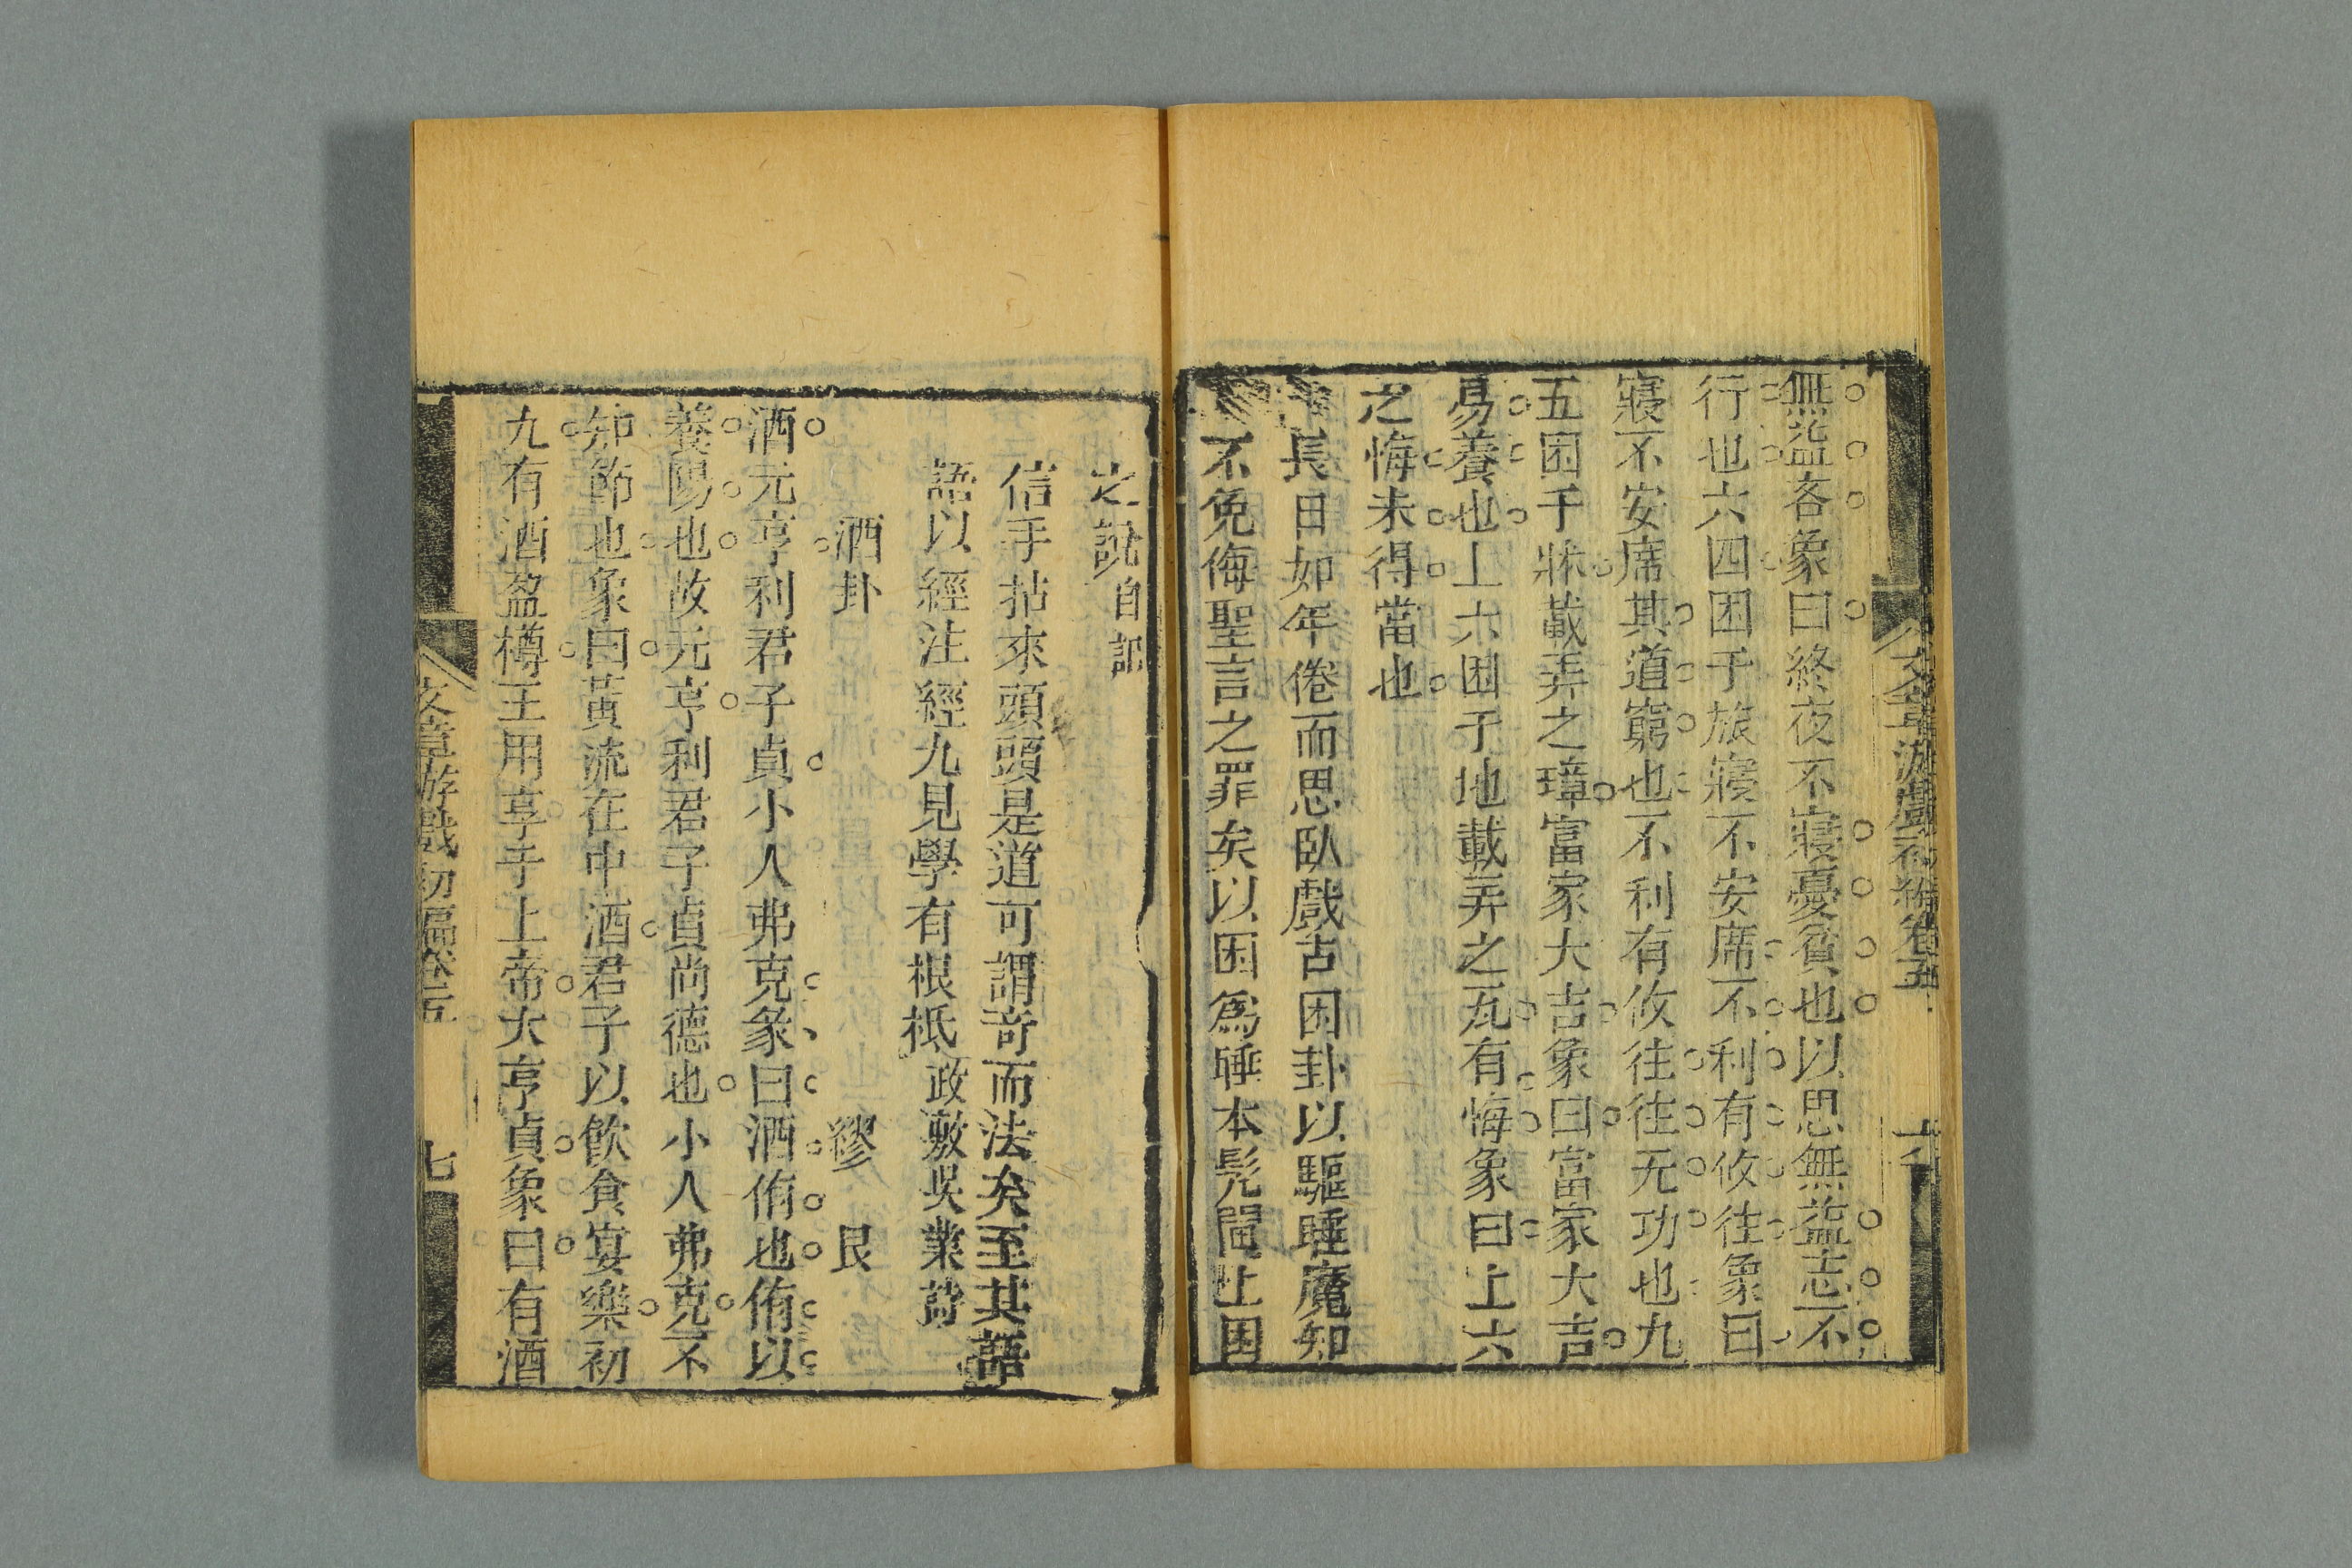 文章游戲初編卷五
六
無益吝象曰終夜不寢憂貧也以思無益志不
行也六四困于旅寢不安席不利有攸往象曰
寢不安席其道窮也不利有攸往往无功也九
五困于牀載弄之璋富家大吉象曰富家大吉
易養也上六困于地載弄之瓦有悔象曰上六
之悔未得當也
長日如年倦而思臥戲占困卦以驅睡魔知
不免侮聖言之罪矣以困爲睡本髡閽止困
之說自記
信手拈來頭頭是道可謂竒而法矣至其語
語以經注經九見學有根柢政敷吳業詩
酒卦
繆艮
酒元亨利君子貞小人弗克彖曰酒侑也侑以
養陽也故元亨利君子貞尚德也小人弗克不
知節也象曰黃流在中酒君子以飲食宴樂初
九有酒盈樽王用享于上帝大亨貞象曰有酒
文章游戲初編卷五
七